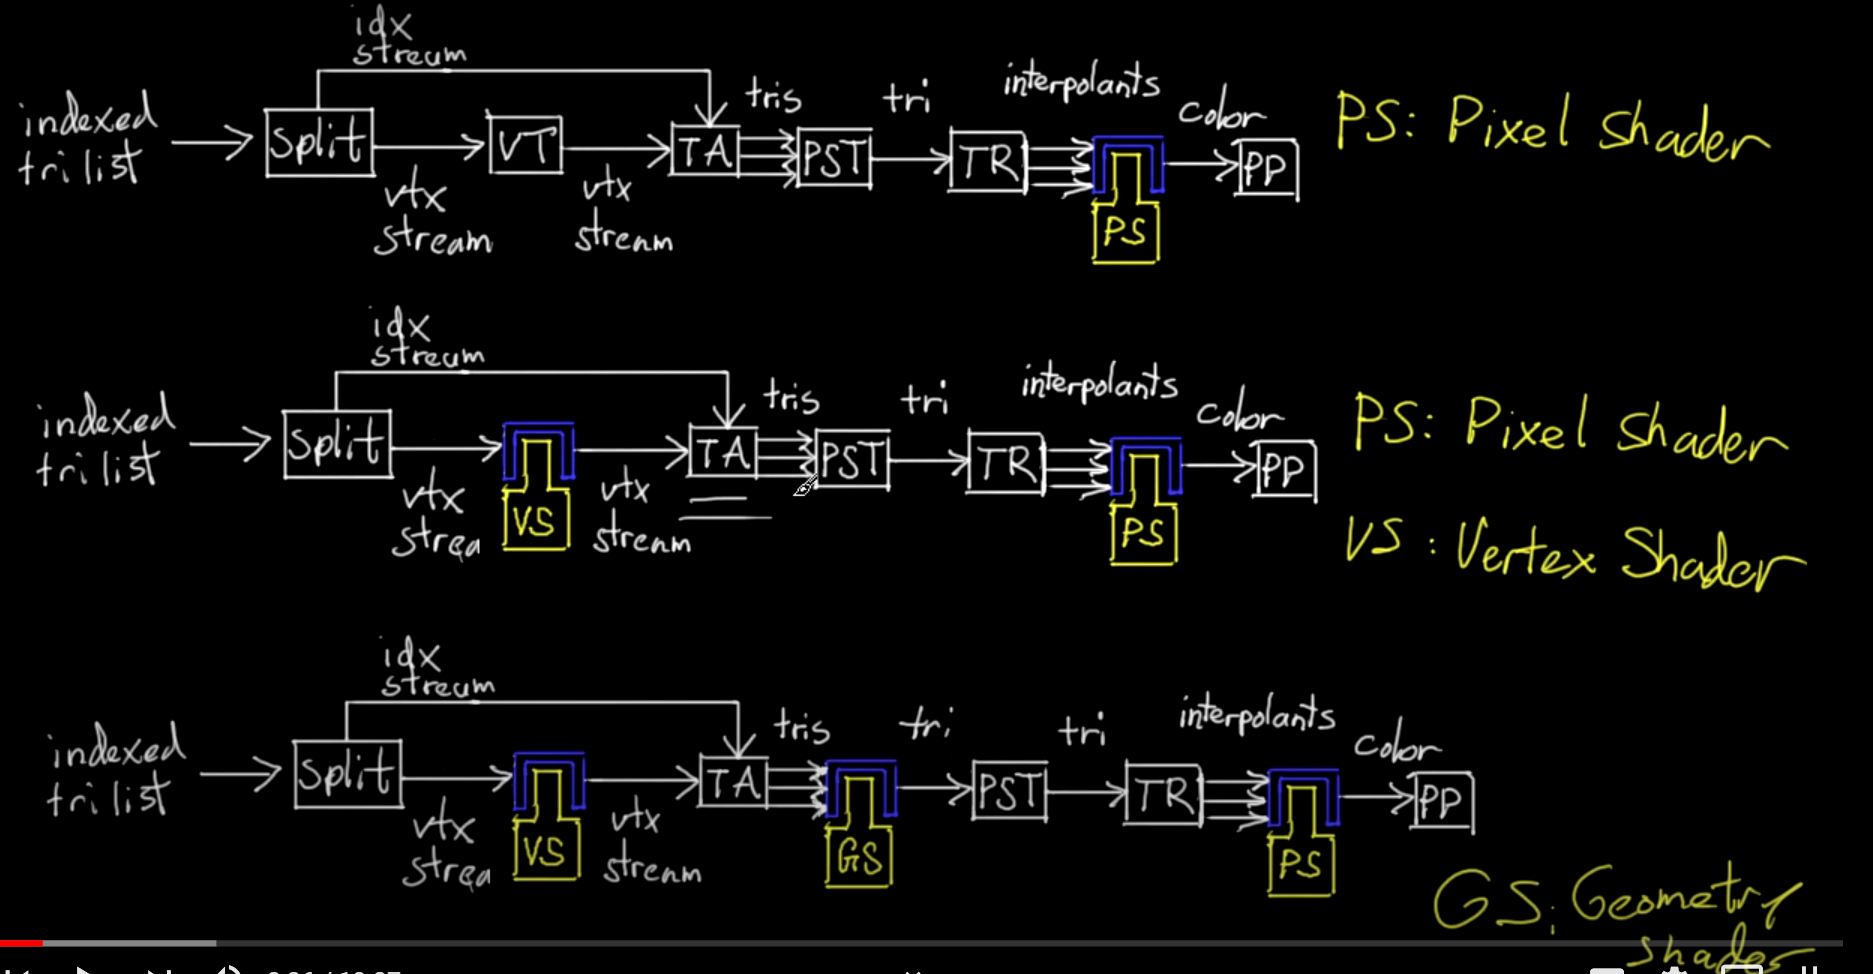 idx
stream
indexed
tri list
Split
vtx
stream
VT
vtx
stream
TA
tris
PST
tri
TR
interpolants
PS
color
PP
PS: Pixel Shader
idx
stream
indexed
tri list
Split
vtx
strea
VS
vtx
stream
TA
tris
PST
tri
TR
interpolants
PS
color
PP
PS: Pixel Shader
VS: Vertex Shader
idx
stream
indexed
tri list
Split
vtx
strea
VS
vtx
stream
TA
tris
GS
tri
PST
tri
TR
interpolants
PS
color
PP
GS: Geometry
shader